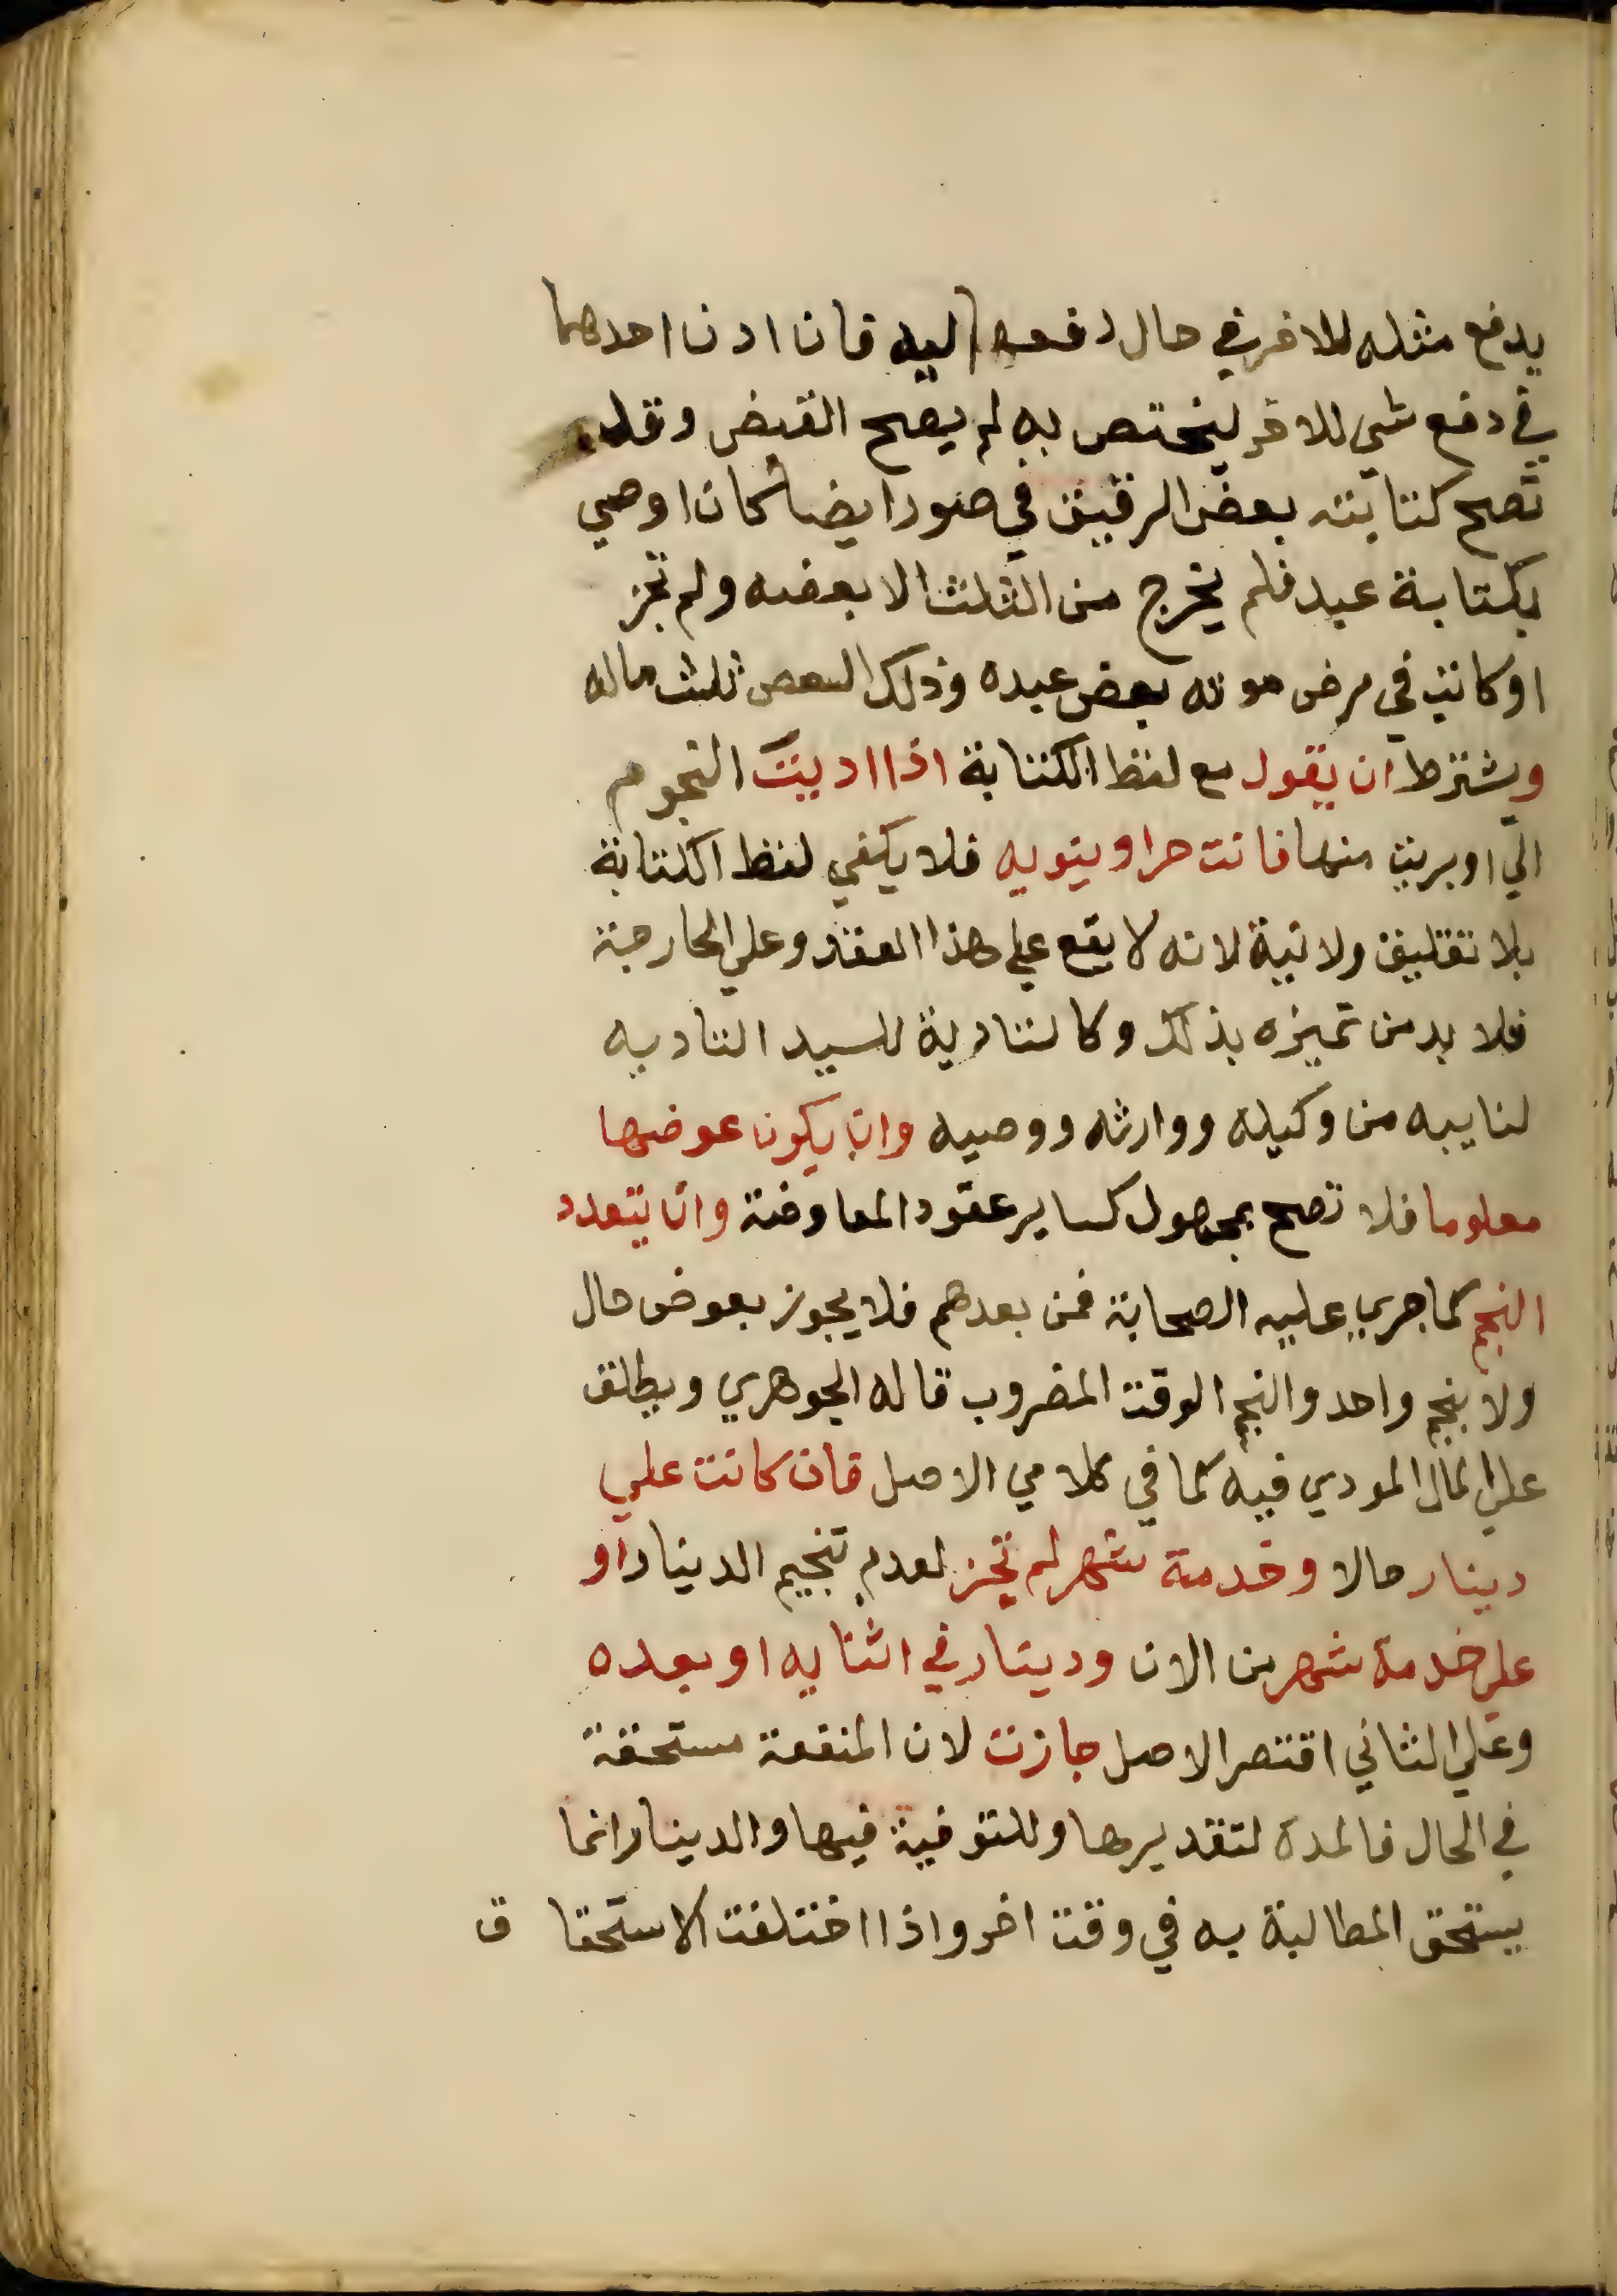 يدفع مثله للاخر في حال دفعه اليه فان اذن احدهما
في دفع شي للاخر ليختص به لم يصح القبض وقد
تصح كتابته بعض الرقيق في صور ايضا كان اوصي
بكتابة عبد فلم يخرج من الثلث الا بعضه ولم تجز
او كاتب في مرض موته بعض عبده وذلك البعض ثلث ماله
ويشترط ان يقول مع لفظ الكتابة اذا اديت النجوم
الي او بريت منها فانت حر او ينويه فلا يكفي لفظ الكتابة
بلا تعليق ولا نية لانه لا يقع علي هذا العقد وعلي المخارجة
فلا بد من تميزه بذلك وكالتادية للسيد التاديه
لنايبه من وكيله ووارثه ووصيه وان يكون عوضها
معلوما فلا تصح بمجهول كساير عقود المعاوضة وان يتعدد
النجم كما جري عليه الصحابة فمن بعدهم فلا يجوز بعوض حال
ولا بنجم واحد والنجم الوقت المضروب قاله الجوهري ويطلق
علي المال المودي فيه كما في كلامي الاصل فان كانت علي
دينار حالا وخدمة شهر لم تجز لعدم تنجيم الدينار او
علي خدمة شهر من الان ودينار في اثنايه او بعده
وعلي الثاني اقتصر الاصل جازت لان المنفعة مستحقة
في الحال فالمدة لتقديرها وللتوفية فيها والدينار انما
يستحق المطالبة به في وقت اخر واذا اختلفت الاستحقاق